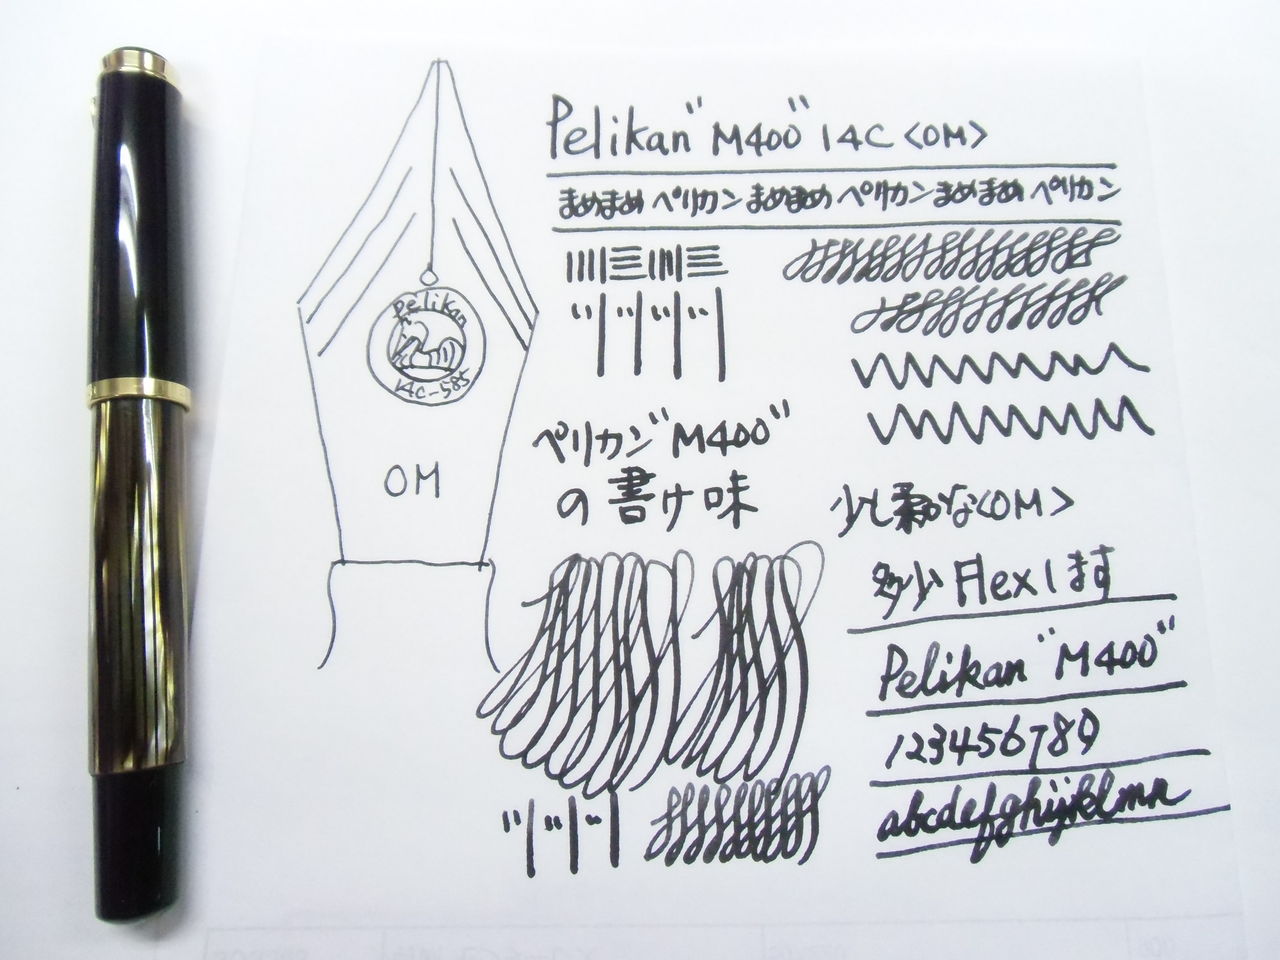 Pelikan "M400" 14C <OM>
まめまめ ペリカン まめまめ ペリカン まめまめ ペリカン
Pelikan
14C-585
OM
ペリカン"M400"
の書け味
少し柔かな<OM>
多少Flexします
Pelikan "M400"
123456789
abcdefghijklmn